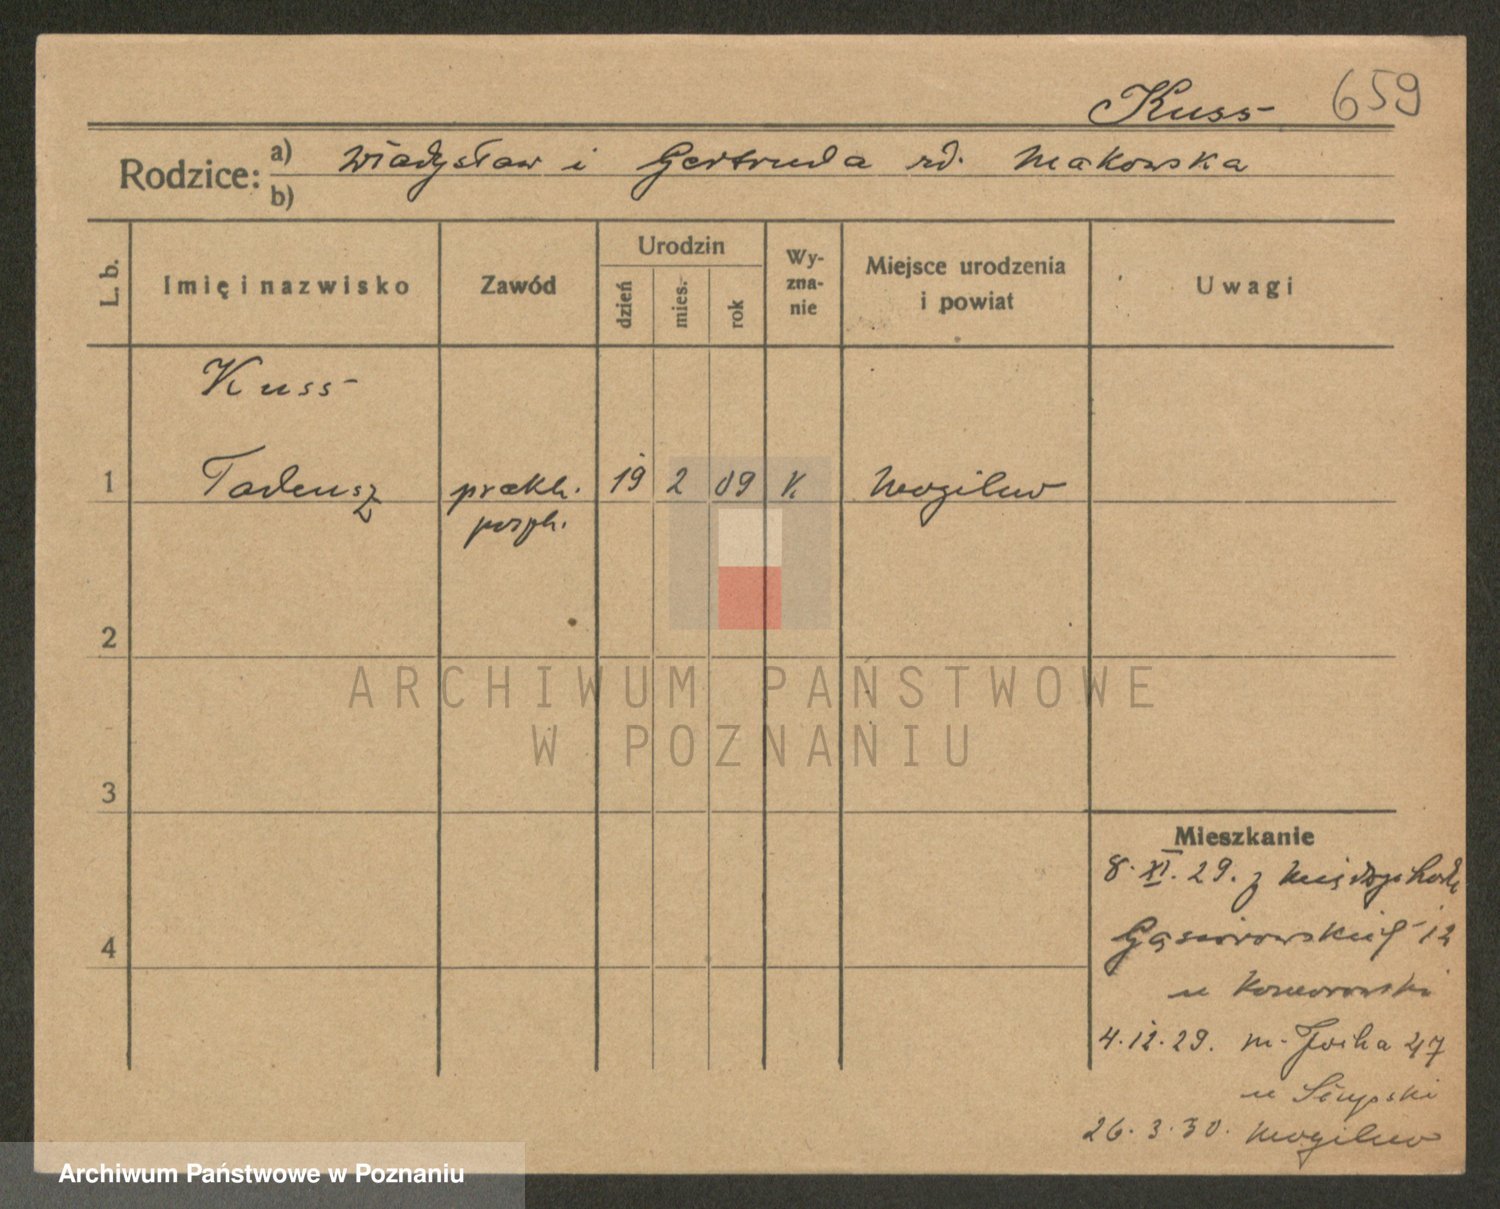 Kuss 659
Rodzice: a) Władysław i Gertruda rd. Makowska
b)
L. b. Imię i nazwisko Zawód Urodzin dzień mies. rok Wyznanie Miejsce urodzenia i powiat Uwagi
Kuss
1 Tadeusz prakt. 19 2 09 K. Mogilno
2
ARCHIWUM PAŃSTWOWE
W POZNANIU
3
Mieszkanie
8. XI. 29. z
4 12
u Komorowski
4.12.29. m. Focha 47
u
26.3.30. Mogilno
Archiwum Państwowe w Poznaniu